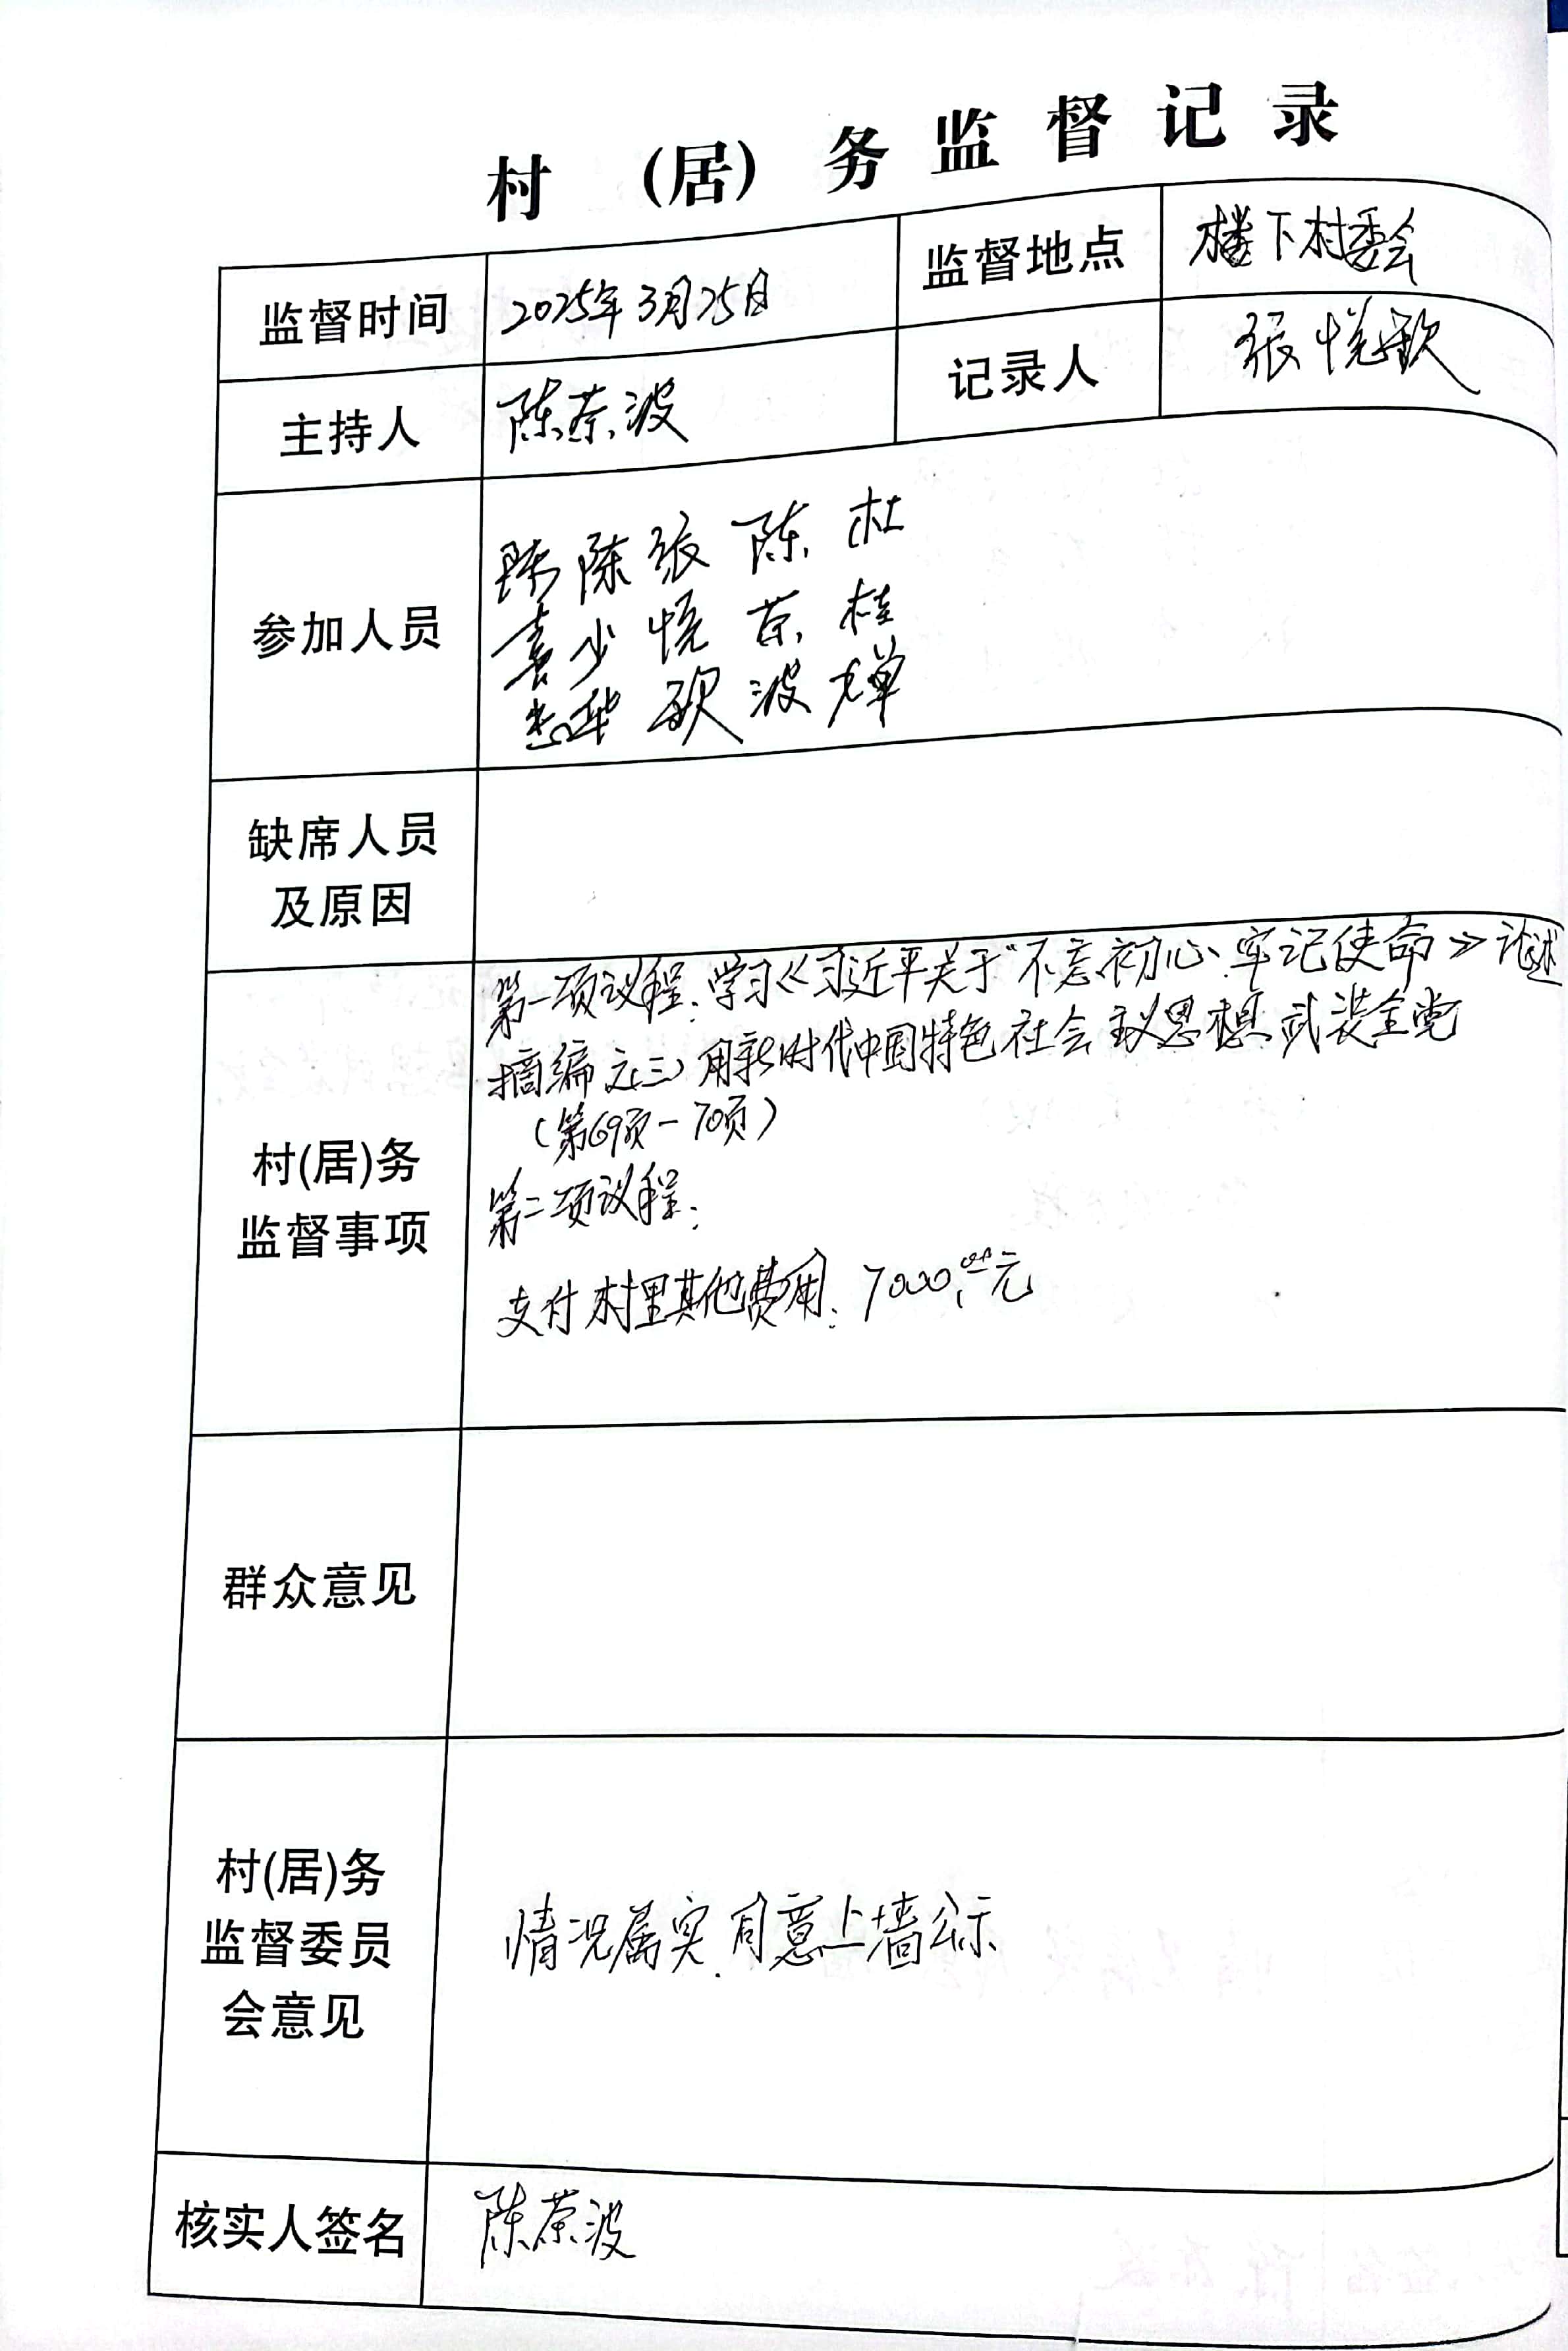 村 (居) 务监督记录
监督时间 2025年3月25日 监督地点 楼下村委会
主持人 陈荣波 记录人 张悦欧
参加人员
陈 陈 张 陈 杜
喜 少 悦 荣 桂
忠 华 欧 波 婵
缺席人员
及原因
第一项议程:学习《习近平关于"不忘初心、牢记使命》论述
摘编之(三)用新时代中国特色社会主义思想武装全党
(第69页-70页)
村(居)务
监督事项
第二项议程:
支付村里其他费用:7000.00元
群众意见
村(居)务
监督委员
会意见
情况属实.同意上墙公示
核实人签名 陈荣波